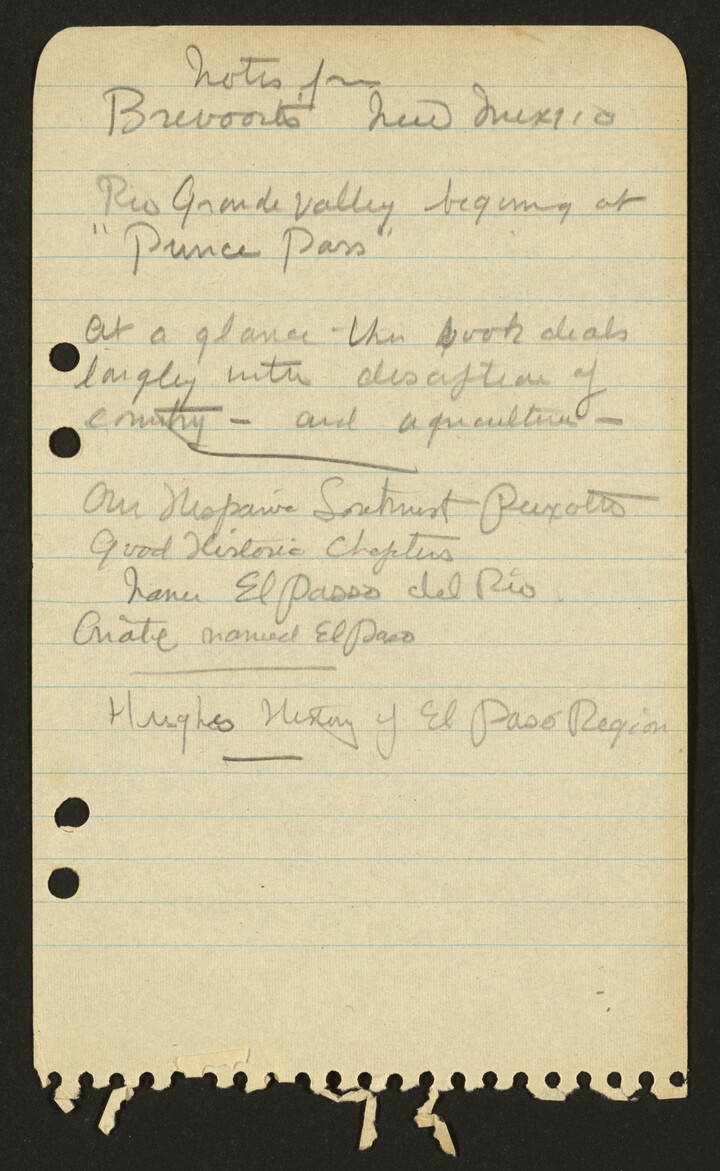 Notes from
Brevoorts New Mexico
Rio Grande Valley begining at
"Prince Pass"
At a glance this book deals
largley with discription of
country - and agriculture -
Our Hispanic Southwest Peixotto
Good Historic Chapters
Name El Passo del Rio.
Oñate named El Paso
Hughes History of El Paso Region